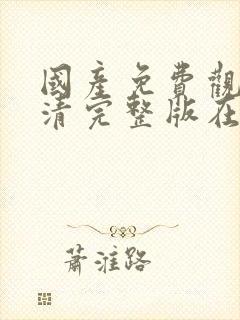 國產免費觀
清完整版在
蕭淮路